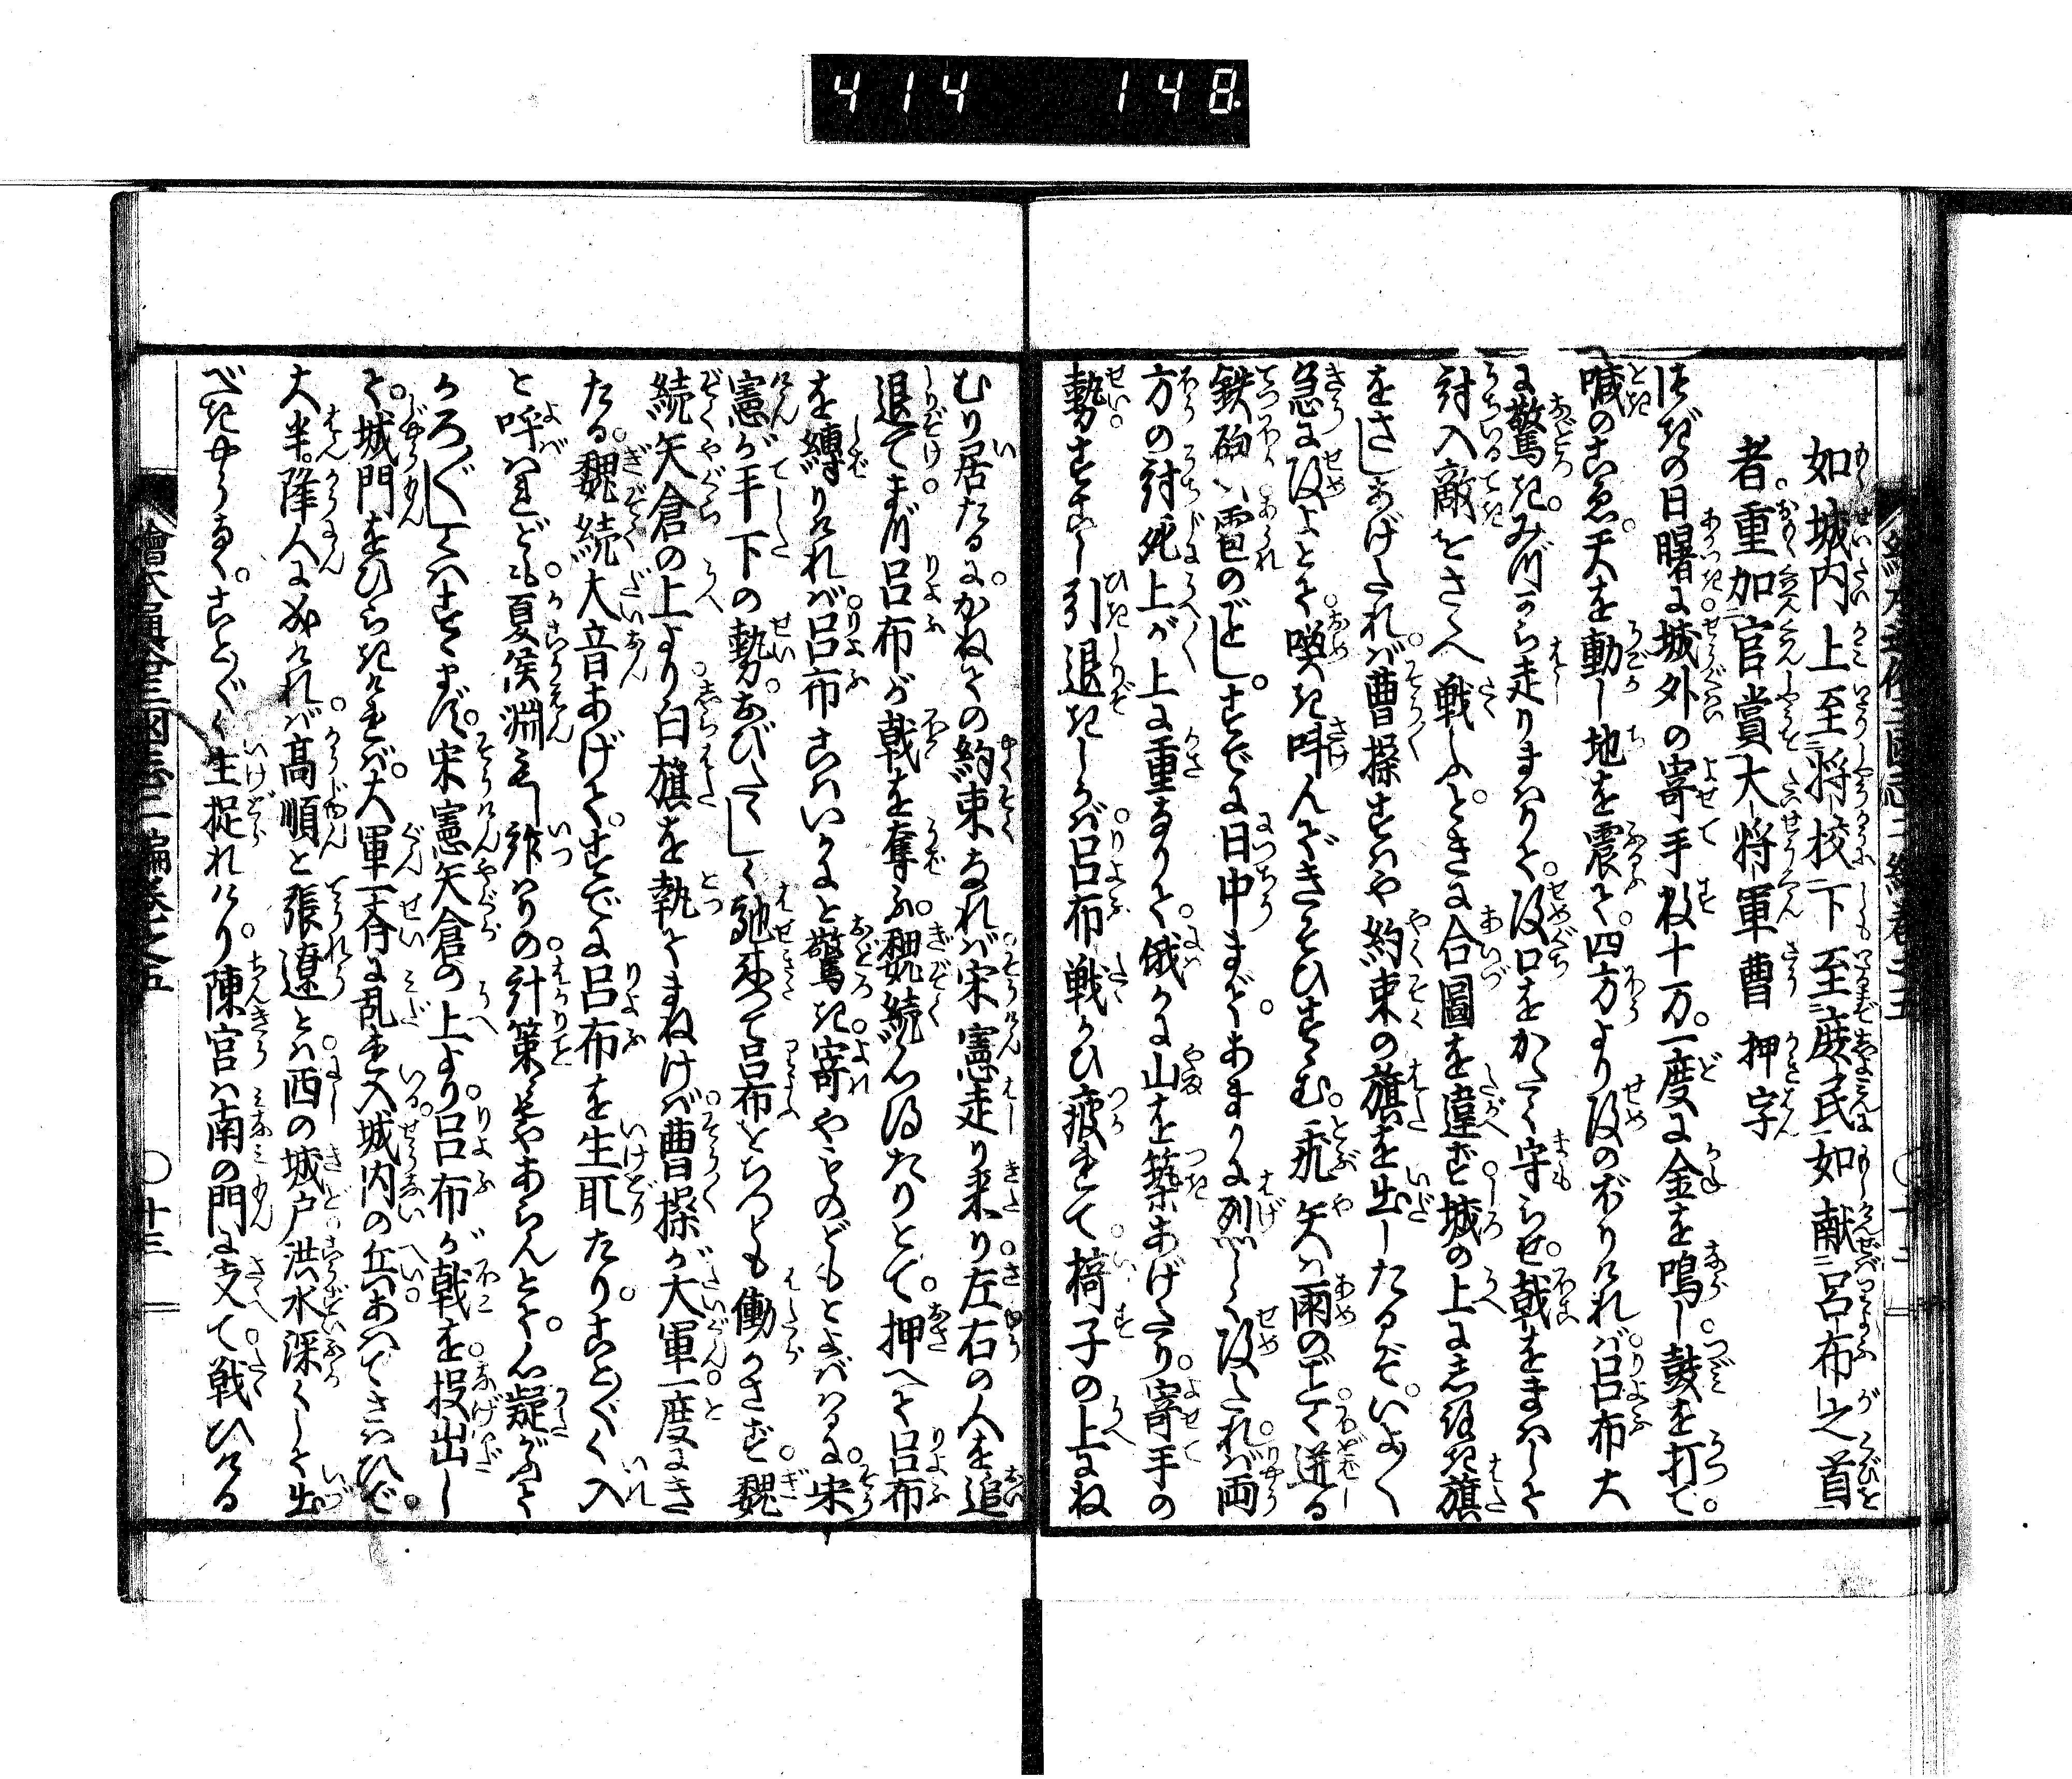 414 148
如城内上至将校下至庶民如献呂布之首
者。重加官賞大将軍曹 押字
次の日曙に城外の寄手数十万。一度に金を鳴し鼓を打て。
喊のこゑ。天を動し地を震て。四方より攻のぼりければ呂布大
に驚き。みづから走りまはりて。攻口をかたく守らせ。戟をまはして
討入敵をさゝへ戦ふ。ときに合圖を違ず城の上に志るき旗
をさしあげたれば曹操すはや約束の旗を出したるぞ。いよ〱
急に攻よとて喚き叫んできそひすゝむ。飛矢は雨のごとく迸る
鉄砲は雹のごとし。すでに日中まで。あまりに烈しく攻たれば両
方の討死上が上に重なりて。俄かに山を築あげたり。寄手の
勢すこし引退きしかば呂布戦かひ疲れて。椅子の上にね
むり居たるに。かねての約束なれば宋憲走り来り左右の人を追
退てまづ呂布が戟を奪ふ。魏続心得たりとて。押へて呂布
を縛りければ呂布こはいかにと驚き。寄やものどもとよばはるに。宋
憲が手下の勢。おびたゝしく馳来つて呂布をちつとも働かさず。魏
続矢倉の上より白旗を執てまねけば曹操が大軍一度にき
たる。魏続大音あげて。すでに呂布を生取たり。こと〲く入
と呼はれども。夏侯淵これ詐りの計策にもやあらんとて。心疑がふて
かろ〲しくはすゝまず。宋憲矢倉の上より。呂布が戟を投出し
て。城門をひらきければ。大軍一斉に乱れ入城内の兵あへてさはひで。
大半。降人に成ければ。高順と張遼とは西の城戸洪水深くして出
べきやうなく。こと〲く生捉れけり。陳宮は南の門に支て。戦ひける
繪本通俗三國志二編巻之五 〇十三